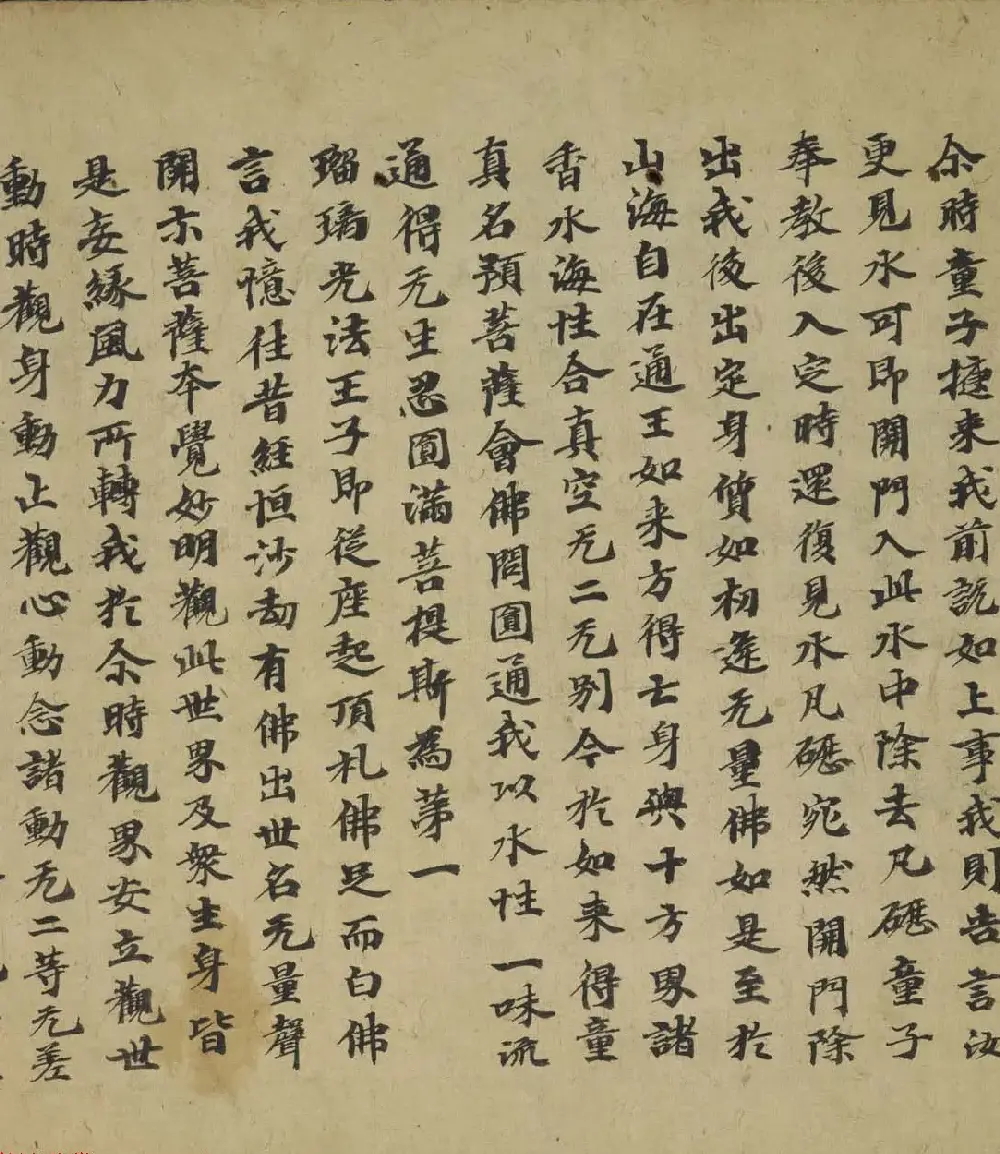 尒時童子揵来我前説如上事我則告言汝
更見水可即開門入此水中除去凡礰童子
奉教後入定時還復見水凡礰宛然開門除
出我後出定身質如初逢无量佛如是至於
山海自在通王如来方得亡身與十方界諸
香水海性合真空无二无别今於如来得童
真名預菩薩會佛問圓通我以水性一味流
通得无生忍圓滿菩提斯為苐一
瑠璃光法王子即従座起頂礼佛足而白佛
言我憶往昔経恒沙劫有佛出世名无量聲
開示菩薩夲覺妙明觀此世界及衆生身皆
是妄縁風力所轉我於尒時觀界安立觀世
動時觀身動止觀心動念諸動无二等无差